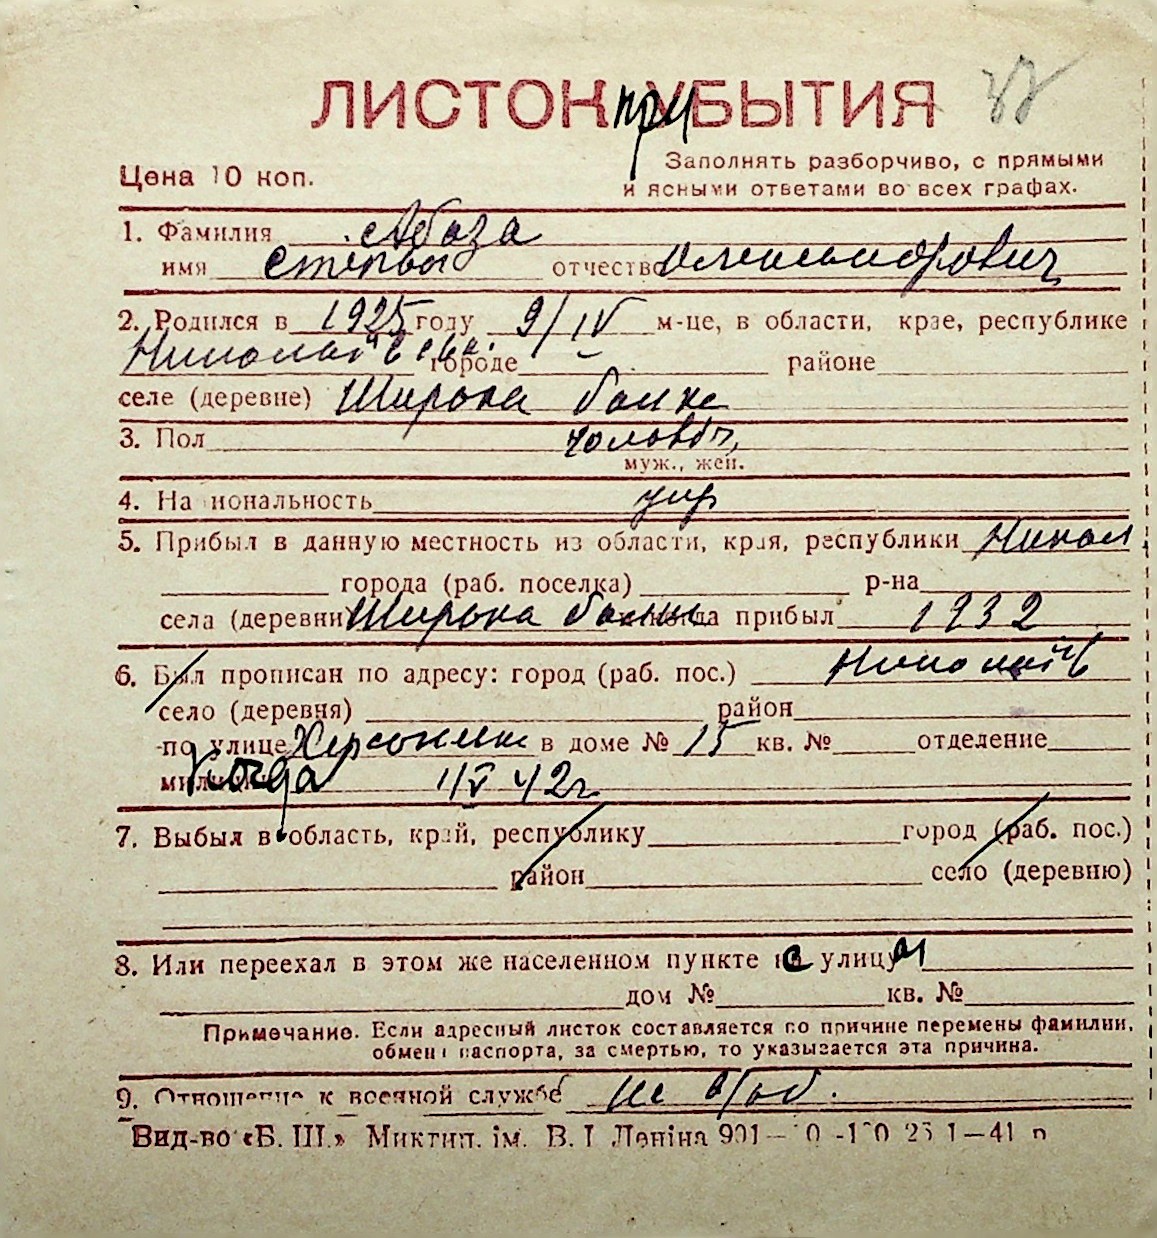 ЛИСТОК при УБЫТИЯ 37
Цена 10 коп.
Заполнять разборчиво, с прямыми
и ясными ответами во всех графах.
1. Фамилия Абаза
имя отчество Олександрович
2. Родился в 1925 году 9/IV м-це, в области, крае, республике
Николаївська городе районе
селе (деревне) Широка балка
3. Пол чоловіч,
муж., жен.
4. Национальность укр
5. Прибыл в данную местность из области, края, республики Никол
города (раб. поселка) р-на
села (деревни) Широка балка когда прибыл 1932
6. Был прописан по адресу: город (раб. пос.) Николаїв
село (деревня) район
по улице Херсонська в доме № 15 кв. № отделение
милиции когда 1/V 42 г.
7. Выбыл в область, край, республику город (раб. пос.)
район село (деревню)
8. Или переехал в этом же населенном пункте с улицы
дом № кв. №
Примечание. Если адресный листок составляется по причине перемены фамилии,
обмена паспорта, за смертью, то указывается эта причина.
9. Отношение к военной службе не в/об.
Вид-во «Б. Ш.» Миктип. ім. В. І Леніна 901